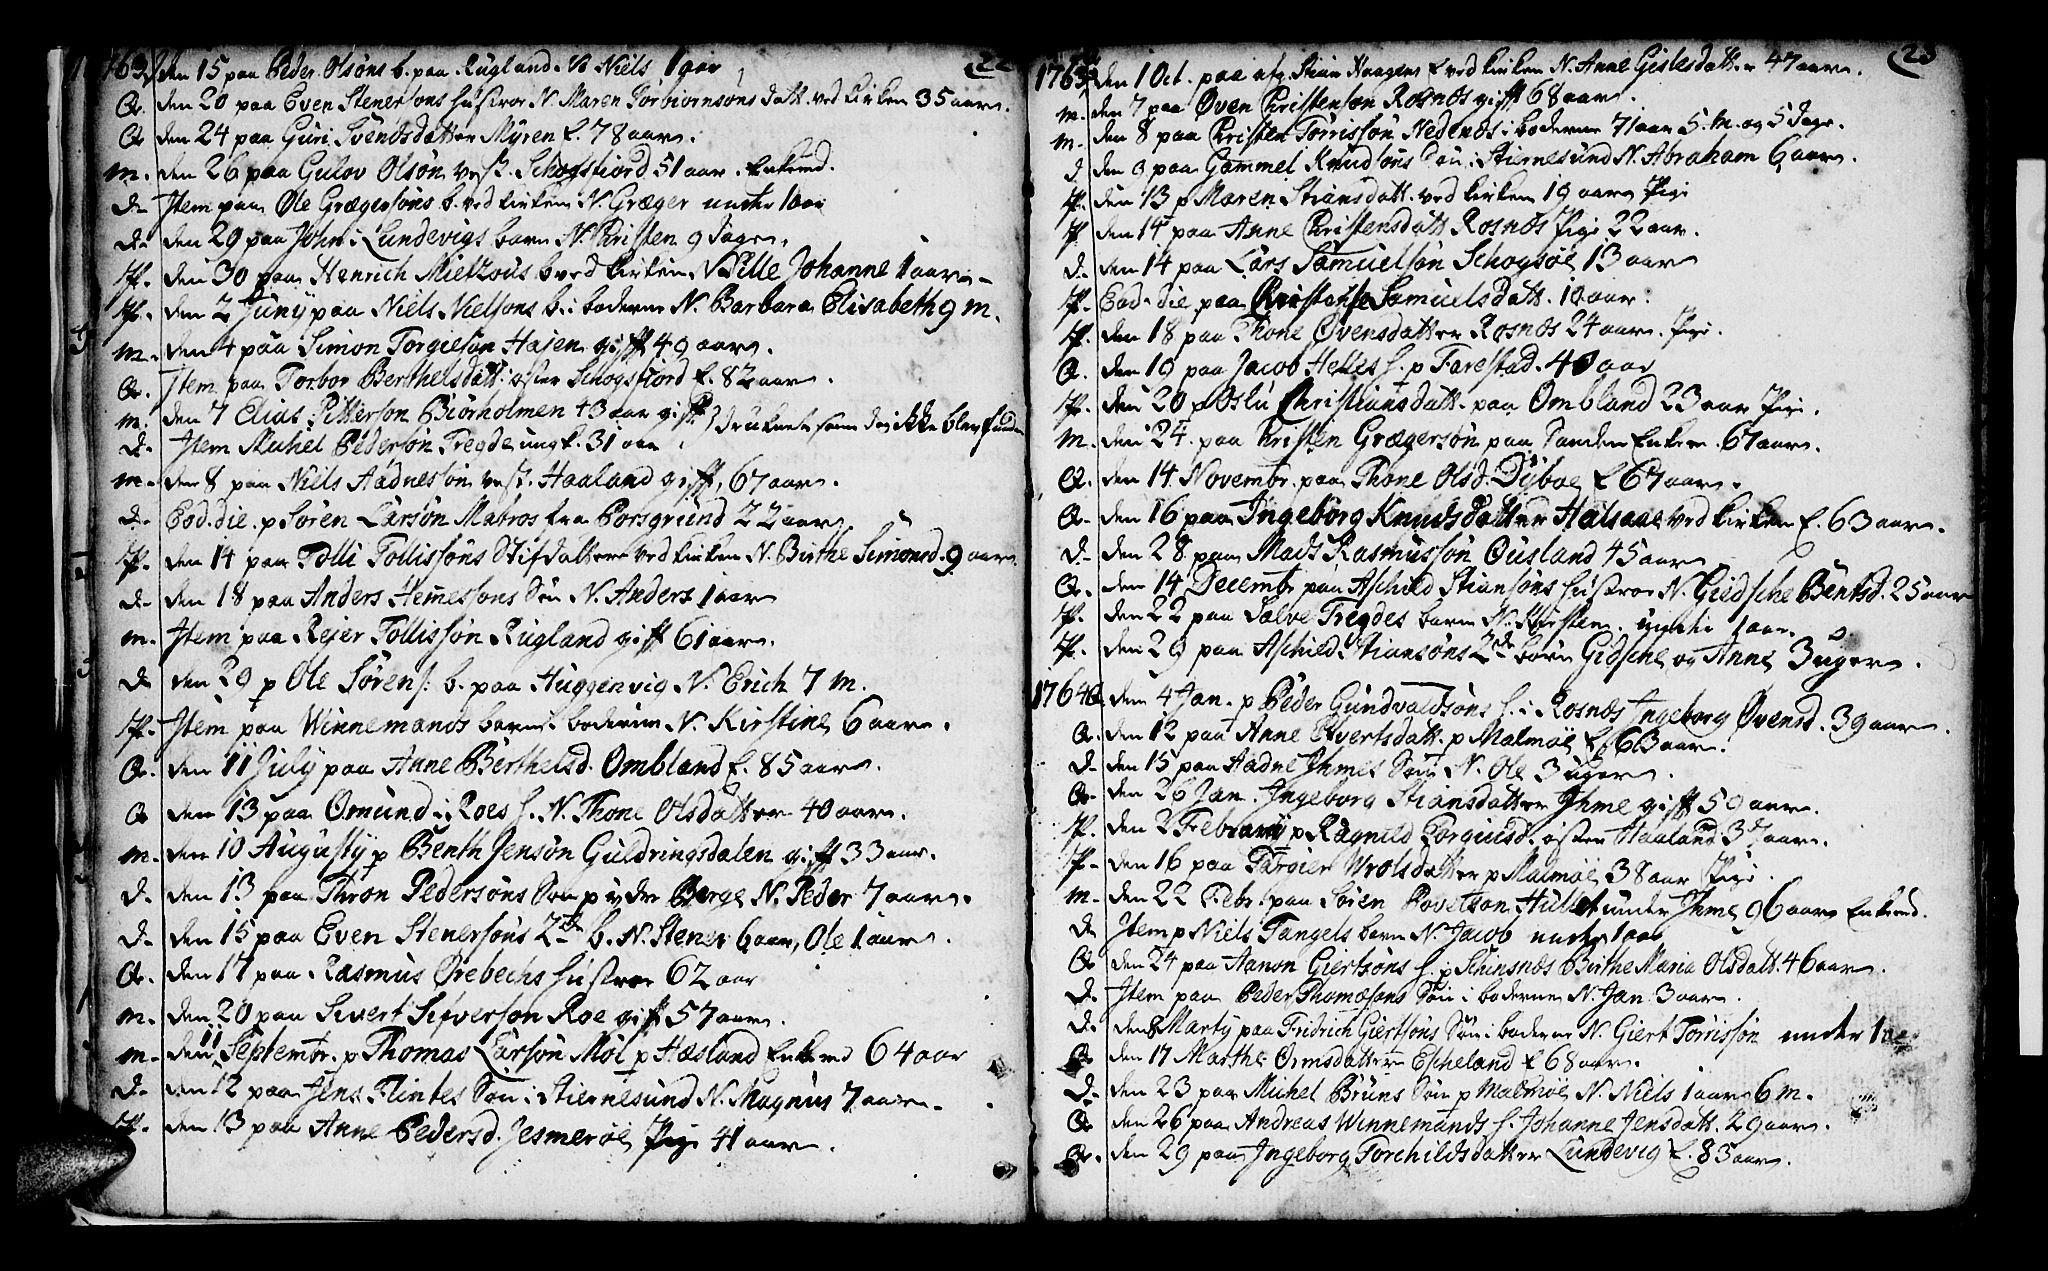 1763 den 15 paa Peder Olsøns b. paa Rugland N. Niels 1 aar 22
Q. den 20 paa Even Stenersøns Hustroe N. Maren Torbiørnsøns datt. ved kirken 35 aar.
Q den 24 paa Guri Svendsdatter Myren E. 78 aar.
M. den 26 paa Gulov Olsøn vest. Schogsfiord 51 aar. Enkemd.
D. Item paa Ole Grægersøns b. ved kirken N. Græger under 1 aar
D. den 29 paa John i Lundevigs barn N. Christen 9 dage.
P. den 30 paa Henrich b ved kirken N. Sille Johanne 1 aar
P. den 2 Juny paa Niels Nielsøns b. i boderne N. Barbara Elisabeth 9 M.
M. den 4 paa Simon Torgiesøn Hajen gift 49 aar.
Q. Item paa Torbor Berthelsdatt. øster Schogsfiord E. 82 aar.
M. den 7 Elias Pittersøn Biørholmen 43 aar gift } druknete som dog ikke blev funden
D. Item Michel Pedersøn Tregde ungk. 31 aar
M. den 8 paa Niels Aadnesøn vest. Haaland gift, 67 aar.
D. Eod. die. p Søren Larsøn Matros fra Porsgrund 22 aar
P. den 14 paa Tolli Tollissøns Stifdatter ved kirken N. Birthe Simonsd. 9 aar.
D. den 18 paa Anders Hemessøns Søn N. Anders 1 aar
M. Item paa Rejer Tollissøn Rugland gift 61 aar.
D den 29 p Ole Sørens. b. paa Huggenvig N. Erich 7 M.
P. Item paa Winnemands barn i boderne N. Kirstine 6 aar.
Q. den 11 July paa Anne Berthelsd. Ombland E. 85 aar.
Q den 13 paa Omund i Roes H. N. Thone Olsdatter 40 aar.
M. den 10 Augusty p Benth Jensøn Guldringsdalen gift 33 aar.
D. den 13 paa Thron Pedersøns Søn p ydre Berge N. Peder 7 aar.
D. den 15 paa Even Stenersøns 2de b. N. Stener 6 aar, Ole 1 aar.
Q. den 17 paa Rasmus Ørebechs Hustroe 62 aar
M. den 20 paa Sivert Sifversøn Roe gift 57 aar.
M. den 11 Septembr. p Thomas Larsøn Møl p Hæsland Enkemd 64 aar
D. den 12 paa Jens Flintes Søn i Stiernesund N. Magnus 7 aar.
P. den 13 paa Anne Pedersd. Jesmerøe Pige 41 aar.
1763 den 1 Oct. paa afg. Stian Haagens E ved kirken N. Anne Gislesdatt. 47 aar. 23
M. den 7 paa Øven Christensøn Rosnæs gift 68 aar.
M. den 8 paa Christen Torrissøn Nedenæs i boderne 71 aar 5. M. og 5 dage.
D. den 9 paa Gammel Knudsøns Søn i Stiernesund N. Abraham 6 aar.
P. den 13 p Maren Stiansdatt. ved kirken 19 aar Pige
P. den 14 paa Anne Christensdatt Rosnæs Pige 22 aar.
D. den 14 paa Lars Samuelsøn Schogsøe 13 aar
P. Eod. die paa Christense Samuelsdatt. 10 aar.
P. den 18 paa Thone Øvensdatter Rosnæs 24 aar. Pige.
Q. den 19 paa Jacob Helles H. p Farestad. 40 aar
P. den 20 p Oslu Christiansdatt. paa Ombland 23 aar Pige.
M. den 24 paa Christen Grægersøn paa Sanden Enkem. 67 aar.
Q. den 14. Novembr. paa Thone Olsd. Dyboe E 67 aar.
Q. den 16 paa Ingeborg Knudsdatter Halsaae ved kirken E. 63 aar.
D. den 28 paa Mads Rasmussøn Ousland 45 aar
Q. den 14 Decembr paa Aschild Stiansøns Hustroe N. Giedsche Bentsd. 25 aar
P. den 22 paa Salve Tregdes barn N. Kirsten. under 1 aar.
P. den 29 paa Aschild Stiansøns 2de børn Gidsche og Anne 3 uger.
1764 Q. den 4 Jan. p Peder Gundvaldsøns H. i Rosnæs Ingeborg Øvensd. 39 aar.
Q. den 12 paa Anne Evertsdatt. p Malmøe E. 63 aar.
D. den 15 paa Aadne Ihmes Søn N. Ole 3 uger.
Q. den 26 Jan. Ingeborg Stiansdatter Ihme gift 50 aar.
P. den 2 February p Ragnild Torgiusd. øster Haaland 37 aar.
P. den 16 paa Targier Wrolsdatter p Malmøe 38 aar Pige.
M. den 22 Febr. paa Søren Povelsøn under Ihme 96 aar Enkemd.
D Item p Niels Tangels barn N. Jacob under 1 aar
Q den 24 paa Aanon Giertsøns H. p Schinsnæs Birthe Maria Olsdatt. 46 aar.
D. Item paa Peder Thomæsøns Søn i boderne N. Jan 3 aar.
D. den 8 Marty paa Fridrich Giertsøns Søn i boderne N. Giert Torrissøn under 1 aar
Q. den 17 Marthe Ormsdatter Escheland E 68 aar.
D. den 23 paa Michel Bruns Søn p Malmøe N. Niels 1 aar 6 M.
Q. den 26 paa Andreas Winnemands H. Johanne Jensdatt. 29 aar.
Q. den 29 paa Ingeborg Torchildsdatter Lundevig E. 83 aar.